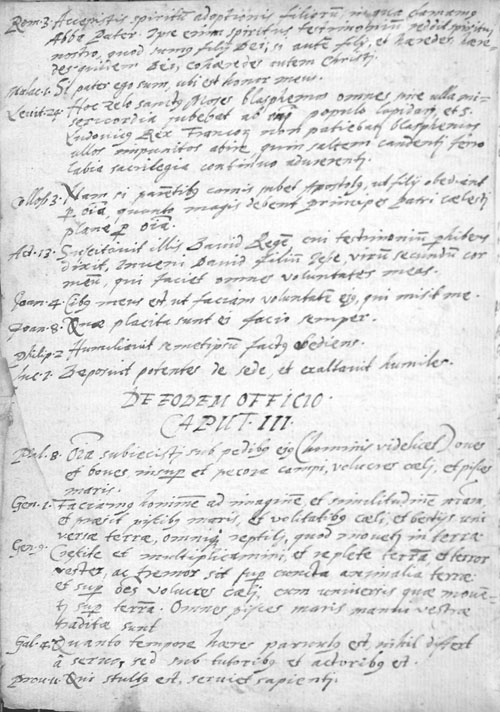 Rom. 3. Accepistis spiritū adoptionis filiorū, in quo clamamus
Abba Pater. Ipse enim spiritus testimoniū reddit spiritui
nostro, quod sumus filij Dei, si autē filij, et haeredes, haere
des quidem Dei, cohaeredes autem Christi.
Malac. 1. Si pater ego sum, ubi est honor meus.
Levit. 24. Hoc zelo sanctus Moses blasphemos omnes sine ulla mi-
sericordia jubebat ab populo lapidari, et S.
Ludovicus Rex Francor non patiebat blasphemos
ullos impunitos abire quin saltem candenti ferro
labia sacrilegia continuo adurerent.
Colloss. 3. Nam si parētibus carnis iubet Apostolus, ut filij obediant
p oīa, quanto magis debent principes Patri caelesti
plane p oīa.
Act. 13. Suscitavit illis David Regē, cui testimoniū phibens
dixit, Inveni David filiū Jesse, virū secundū cor
meū, qui faciet omnes voluntates meas.
Joan. 4. Cibus meus est ut faciam voluntatē ejus, qui misit me.
Joan. 8. Quae placita sunt ei facio semper.
Philip. 2 Humiliavit semetipsū factus obediens.
Luc. 1. Deposuit potentes de sede, et exaltavit humiles.
DE EODEM OFFICIO
CAPUT. III.
Psal. 8. Oīa subiecisti sub pedibus ejus (hominis videlicet) oves
et boves insup et pecora campi, volucres caeli, et pisces
maris.
Gen. 1. Faciamus hominē ad imaginē et similitudinē nram,
et praesit piscibus maris, et volatilibus caeli, et bestijs uni
versae terrae, omnique reptili, quod movetur in terra
Gen. 9. Crescite et multiplicamini, et replete terrā, et terror
vester, ac tremor sit sup cuncta animalia terrae
et sup oēs volucres caeli, cum universis quae moven-
tur sup terrā. Omnes pisces maris manui vestrae
traditae sunt
Gal. 4. Quanto tempore haeres parvulus est, nihil differt
â servo, sed sub tutoribus et actoribus est.
Prov. 11. Qui stultus est, serviet sapienti.